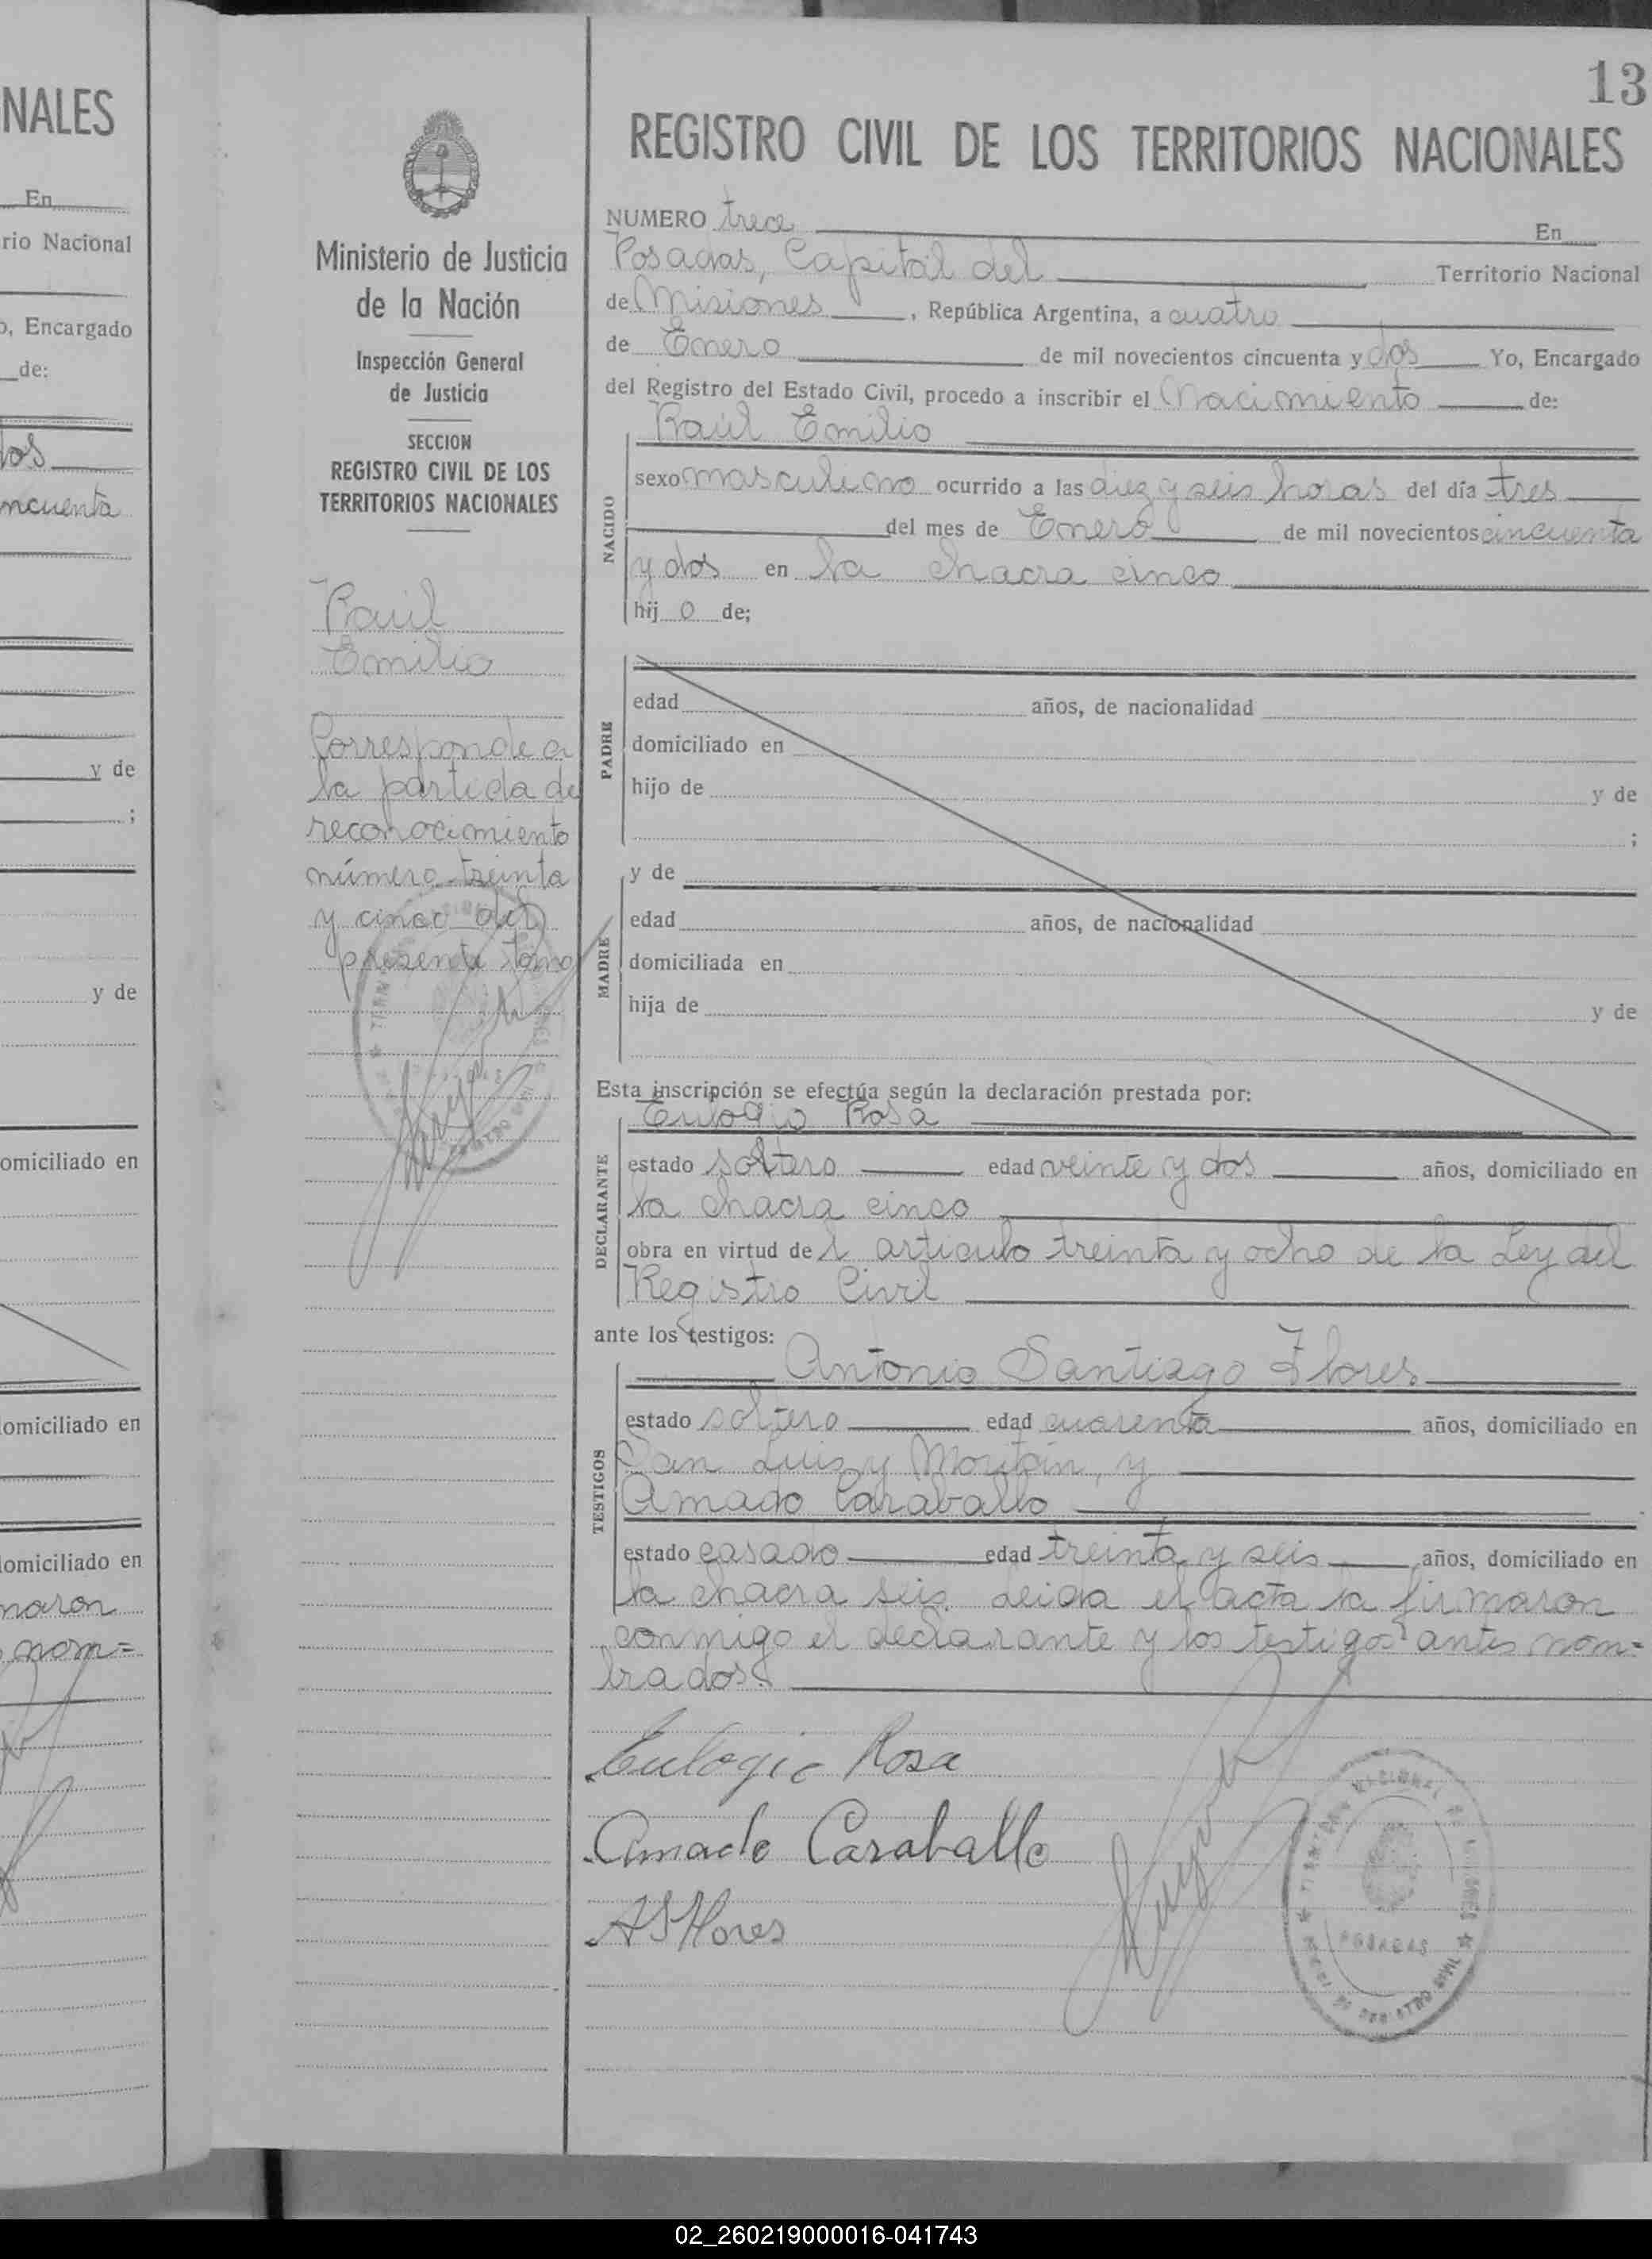 NALES
En
rio Nacional
o, Encargado
de:
dos
ncuenta
y de
;
y de
omiciliado en
omiciliado en
omiciliado en
maron
nom=
13
Ministerio de Justicia
de la Nación
Inspección General
de Justicia
SECCION
REGISTRO CIVIL DE LOS
TERRITORIOS NACIONALES
Raúl
Emilio
Corresponde a
la partida de
reconocimiento
número treinta
y cinco del
presente tomo
REGISTRO CIVIL DE LOS TERRITORIOS NACIONALES
NUMERO trece En
Posadas, Capital del Territorio Nacional
de Misiones, República Argentina, a cuatro
de Enero de mil novecientos cincuenta y dos Yo, Encargado
del Registro del Estado Civil, procedo a inscribir el Nacimiento de:
Raúl Emilio
NACIDO
sexo masculino ocurrido a las diez y seis horas del día tres
del mes de Enero de mil novecientos cincuenta
y dos en la chacra cinco
hij o de;
PADRE
edad años, de nacionalidad
domiciliado en
hijo de y de
;
MADRE
y de
edad años, de nacionalidad
domiciliada en
hija de y de
Esta inscripción se efectúa según la declaración prestada por:
Eulogio Rosa
DECLARANTE
estado soltero edad veinte y dos años, domiciliado en
la chacra cinco
obra en virtud de l articulo treinta y ocho de la Ley del
Registro Civil
ante los testigos:
Antonio Santiago Flores
TESTIGOS
estado soltero edad cuarenta años, domiciliado en
San Luis y Moritán, y
Amado Caraballo
estado casado edad treinta y seis años, domiciliado en
la chacra seis. Leida el acta la firmaron
conmigo el declarante y los testigos antes nom=
brados.
Eulogio Rosa
Amado Caraballo
A S Flores
NACIONAL DE MISIONES
POSADAS
REGISTRO CIVIL
02_260219000016-041743